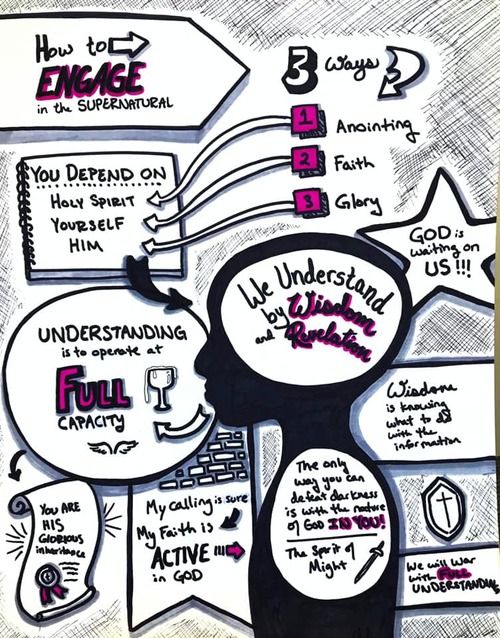 How to
ENGAGE
in the SUPERNATURAL
3 Ways
1 Anointing
2 Faith
3 Glory
YOU DEPEND ON
HOLY SPIRIT
YOURSELF
HIM
GOD is
waiting on
US!!!
We Understand
by Wisdom
and Revelation
UNDERSTANDING
is to operate at
FULL
CAPACITY
Wisdom
is knowing
what to do
with the
information
YOU ARE
HIS
GLORIOUS
inheritance
My calling is sure
My Faith is
ACTIVE !!!
in GOD
The only
way you can
defeat darkness
is with the nature
of God IN YOU!
The Spirit of
Might
We will War
with FULL
UNDERSTANDING